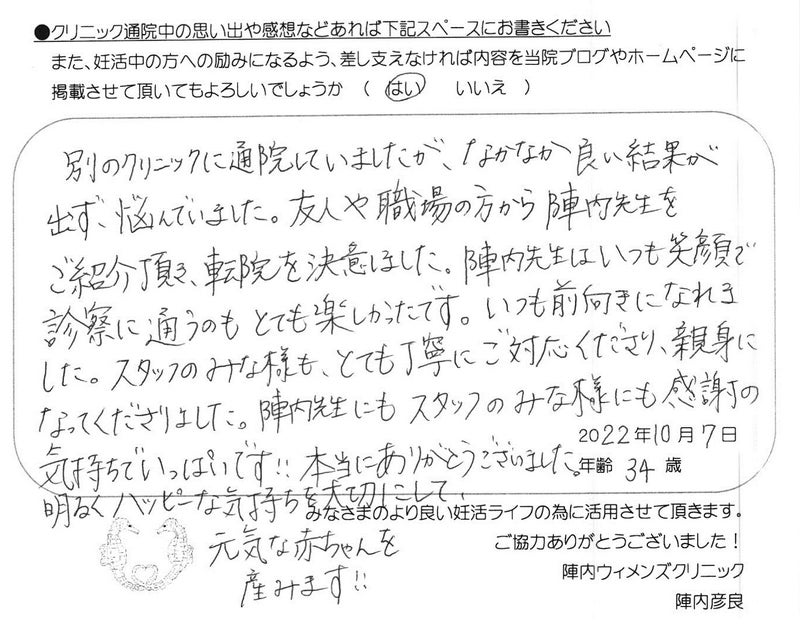 ●クリニック通院中の思い出や感想などあれば下記スペースにお書きください
また、妊活中の方への励みになるよう、差し支えなければ内容を当院ブログやホームページに
掲載させて頂いてもよろしいでしょうか （ はい いいえ ）
別のクリニックに通院していましたが、なかなか良い結果が
出ず、悩んでいました。友人や職場の方から陣内先生を
ご紹介頂き、転院を決意しました。陣内先生はいつも笑顔で
診察に通うのもとても楽しかったです。いつも前向きになれま
した。スタッフのみな様も、とても丁寧にご対応くださり、親身に
なってくださりました。陣内先生にもスタッフのみな様にも感謝の
気持ちでいっぱいです!! 本当にありがとうございました。
2022年10月7日
年齢 34 歳
明るくハッピーな気持ちを大切にして、
元気な赤ちゃんを
産みます!!
みなさまのより良い妊活ライフの為に活用させて頂きます。
ご協力ありがとうございました！
陣内ウィメンズクリニック
陣内彦良